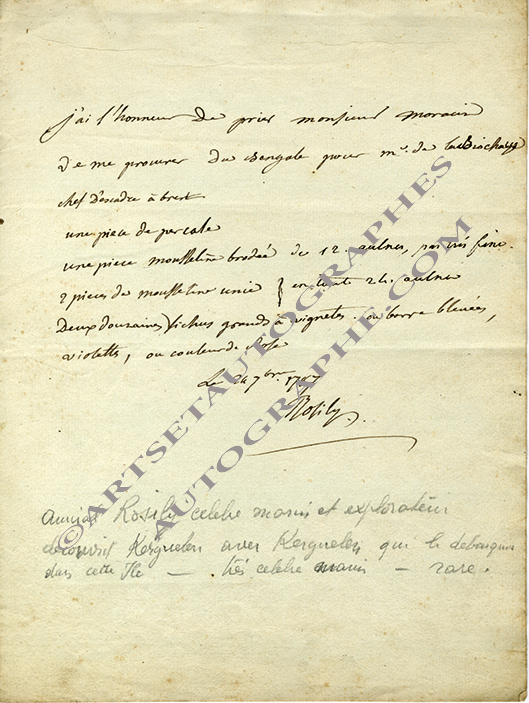 j'ai l'honneur de prier monsieur moracin
de me procurer du Bengale pour mr. de la Biochaye
chef d'escadre à brest
une piece de percale
une piece mousseline brodée de 12. aulnes, pas très fine.
2 pieces de mousseline unie } en tout 24. aulnes
Deux douzaines fichus grands à vignetes ou barre bleuées,
violettes, ou couleur de Rose
Le 24 7bre. 1787
Rosily
amiral Rosily celebre marin et explorateur
decouvrit Kerguelen avec Kerguelen qui le debarqua
dans cette Ile — très celebre marin — rare.
©ARTSETAUTOGRAPHES
AUTOGRAPHE.COM